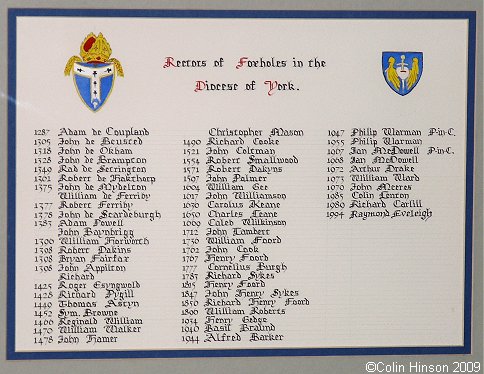 Rectors of Foxholes in the
Diocese of York.
1287 Adam de Coupland
1305 John de Beusted
1318 John de Okham
1328 John de Brampton
1349 Rad de Setrington
1362 Robert de Hakthorp
1375 John de Mydelton
William de Ferriby
1377 Robert Ferriby
1378 John de Scardeburgh
1383 Adam Fowell
John Baynbrigg
1396 William Horworth
1398 Robert Dakins
1398 Bryan Fairfax
1398 John Appilton
Richard
1425 Roger Esyngwold
1428 Richard Pygill
1440 Thomas Astyn
1452 Sym. Browne
1466 Reginald William
1470 William Walker
1478 John Hamer
Christopher Mason
1490 Richard Cooke
1521 John Coltman
1554 Robert Smallwood
1571 Robert Dakyns
1597 John Palmer
1604 William Gee
1617 John Williamson
1630 Carolus Keane
1650 Charles Leane
1660 Caleb Wilkinson
1712 John Lambert
1730 William Foord
1762 John Cook
1767 Henry Foord
1777 Cornelius Burgh
1783 Richard Sykes
1815 Henry Foord
1847 John Henry Sykes
1850 Richard Henry Foord
1890 William Roberts
1934 Henry Gedge
1940 Basil Braund
1944 Alfred Barker
1947 Philip Warman P-in-C.
1955 Philip Warman
1967 Ian McDowell P-in-C.
1968 Ian McDowell
1972 Arthur Drake
1973 William Ward
1976 John Meeres
1983 Colin Lenton
1989 Richard Carlill
1994 Raymond Eveleigh
©Colin Hinson 2009